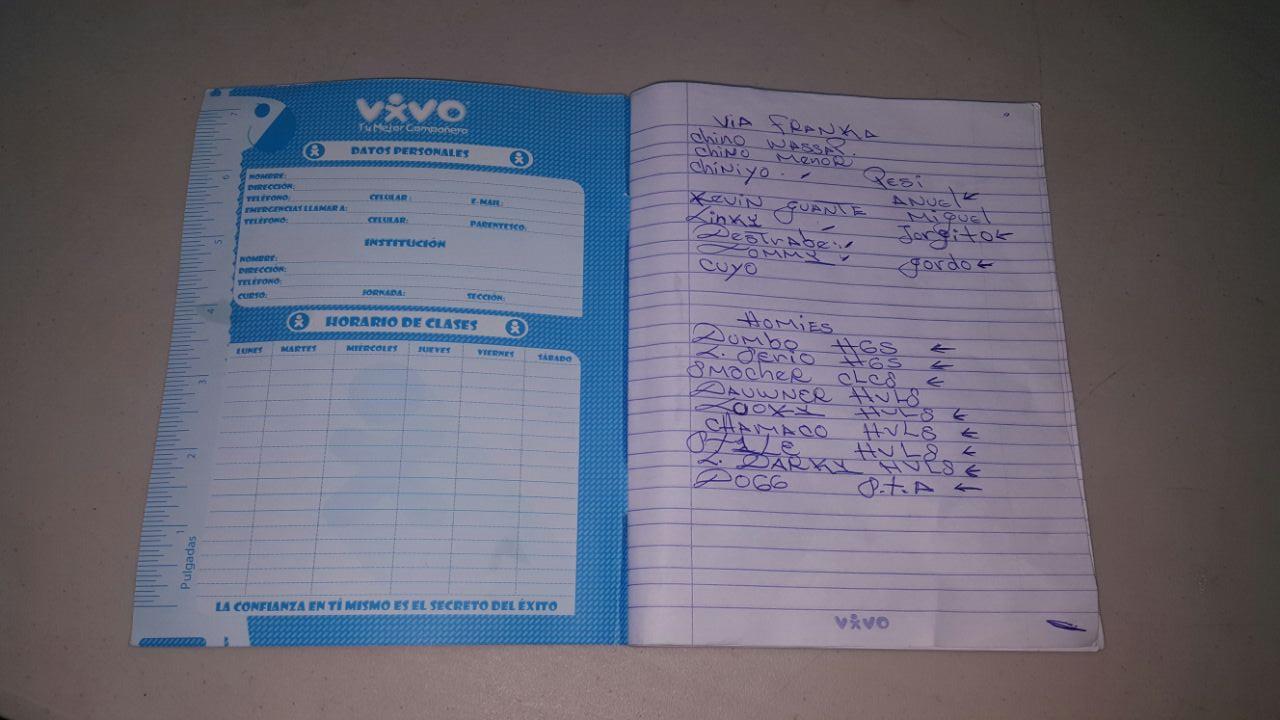 VIVO
Tu Mejor Compañero
DATOS PERSONALES
NOMBRE:
DIRECCIÓN:
TELÉFONO: CELULAR: E-MAIL:
EMERGENCIAS LLAMAR A:
TELÉFONO: CELULAR: PARENTESCO:
INSTITUCIÓN
NOMBRE:
DIRECCIÓN:
TELÉFONO:
CURSO: JORNADA: SECCIÓN:
HORARIO DE CLASES
LUNES MARTES MIERCOLES JUEVES VIERNES SÁBADO
LA CONFIANZA EN TÍ MISMO ES EL SECRETO DEL ÉXITO
7
6
5
4
3
2
1
Pulgadas
VIA FRANKA
chino WASSAR.
chino Menor
chiniyo. Pesi
ANUEL ←
Kevin guante Miguel
Linky Jorgito ←
Destrabe
Tommy gordo ←
CUYO
HOMIES
Dumbo HGS ←
L. Serio HGS ←
Smocher CLCS ←
DAUWNER HVLS
LOOKY HVLS ←
CHAMACO HVLS ←
HVLS ←
L. DARKY HVLS ←
DOGG S.t.A ←
VIVO